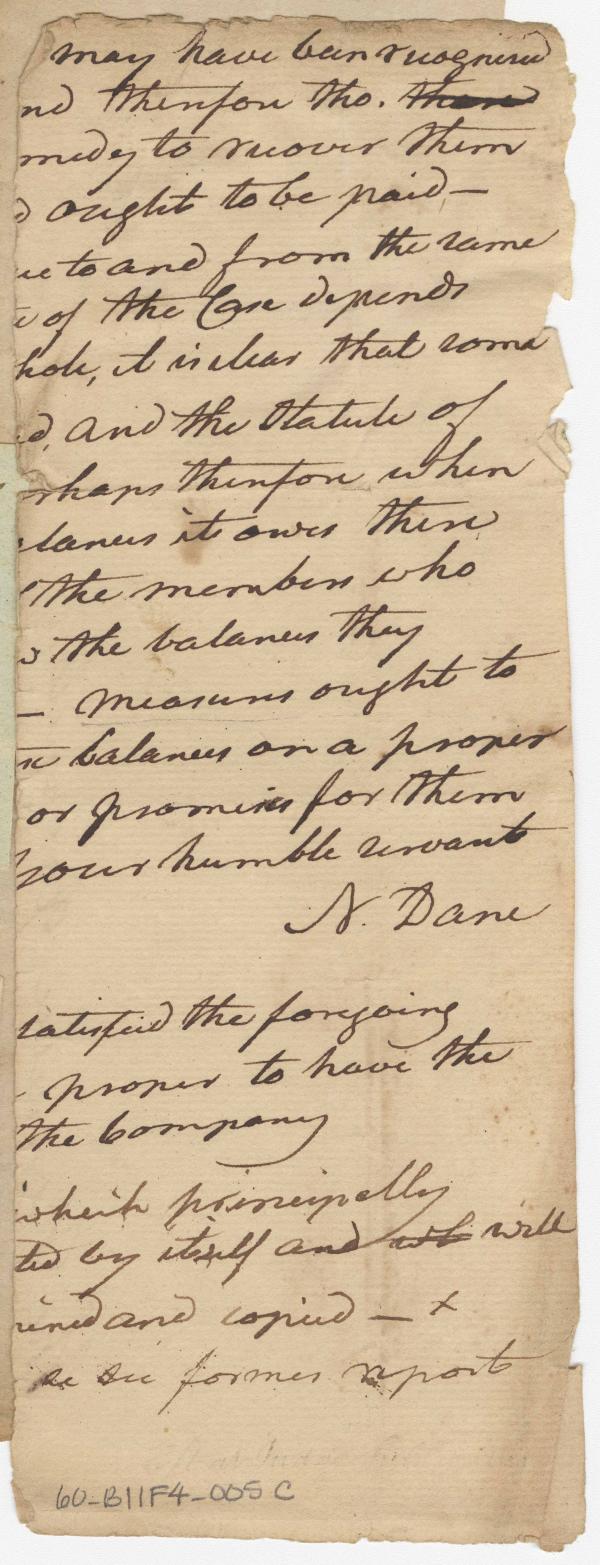 may have been recognised
nd therefore tho. there
medy to recover them
d ought to be paid —
ue to and from the same
e of the Case depends
hole, it is clear that some
d, and the Statute of
rhaps therefore when
lances it owes there
the members who
the balances they
— measures ought to
se balances on a proper
or promises for them
your humble servant
N. Dane
satisfied the foregoing
proper to have the
the Company
which principally
ted by itself and wh will
ined and copied — x
se see former report
60-B11F4-005C